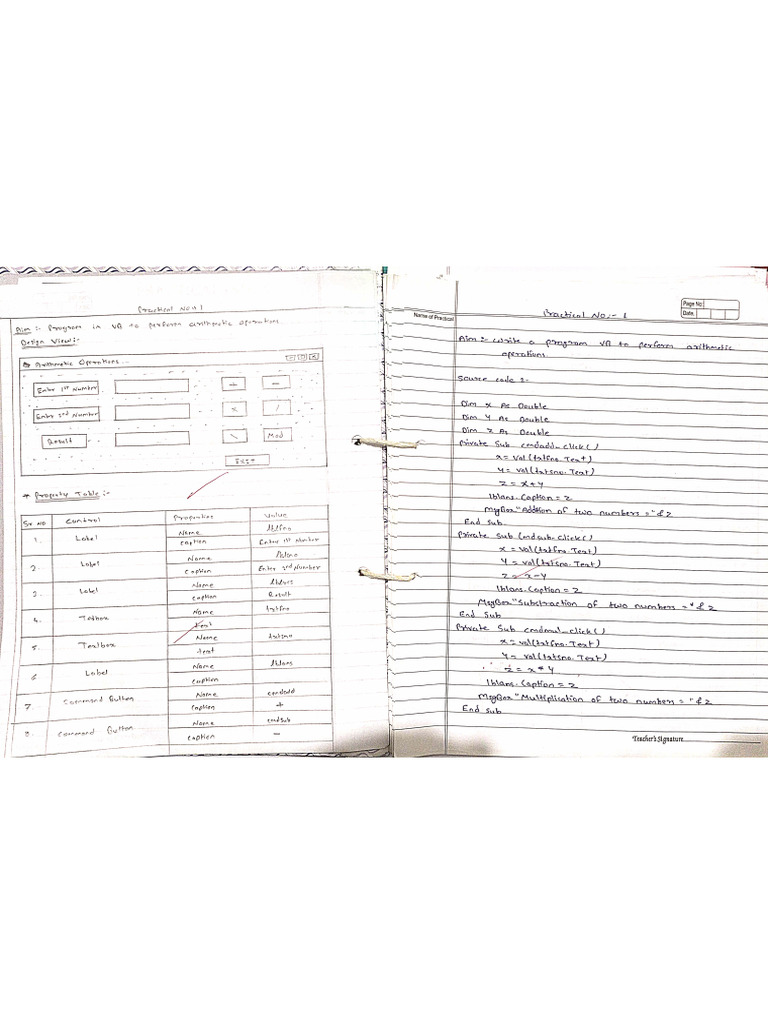 Practical No:- 1
Aim :- Program in VB to perform arithmetic operations.
Design View:-
Arithmetic Operations...
Enter 1st Number + -
Enter 2nd Number × /
Result \ Mod
Exit
* Property Table :-
Sr No Control Properties Value
1. Label Name lblfno
Caption Enter 1st Number
2. Label Name lblsno
Caption Enter 2nd Number
3. Label Name lblres
Caption Result
4. Textbox Name txtfno
text
5. Textbox Name txtsno
text
6 Label Name lblans
Caption
7. Command Button Name cmdadd
Caption +
8. Command Button Name cmdsub
Caption -
Page No:
Date:
Name of Practical
Practical No.- 1
Aim :- Write a program VB to perform arithmetic
operations.
Source code :-
Dim x As Double
Dim y As Double
Dim z As Double
Private Sub cmdadd_click()
x = Val(txtfno.Text)
y = val(txtsno.Text)
z = x + y
lblans.Caption = z
MsgBox "Addition of two numbers = " & z
End Sub
Private Sub cmdsub_click()
x = Val(txtfno.Text)
y = val(txtsno.Text)
z = x - y
lblans.Caption = z
MsgBox "Substraction of two numbers = " & z
End Sub
Private Sub cmdmul_click()
x = val(txtfno.Text)
y = val(txtsno.Text)
z = x * y
lblans.Caption = z
MsgBox "Multiplication of two numbers = " & z
End Sub
Teacher's Signature